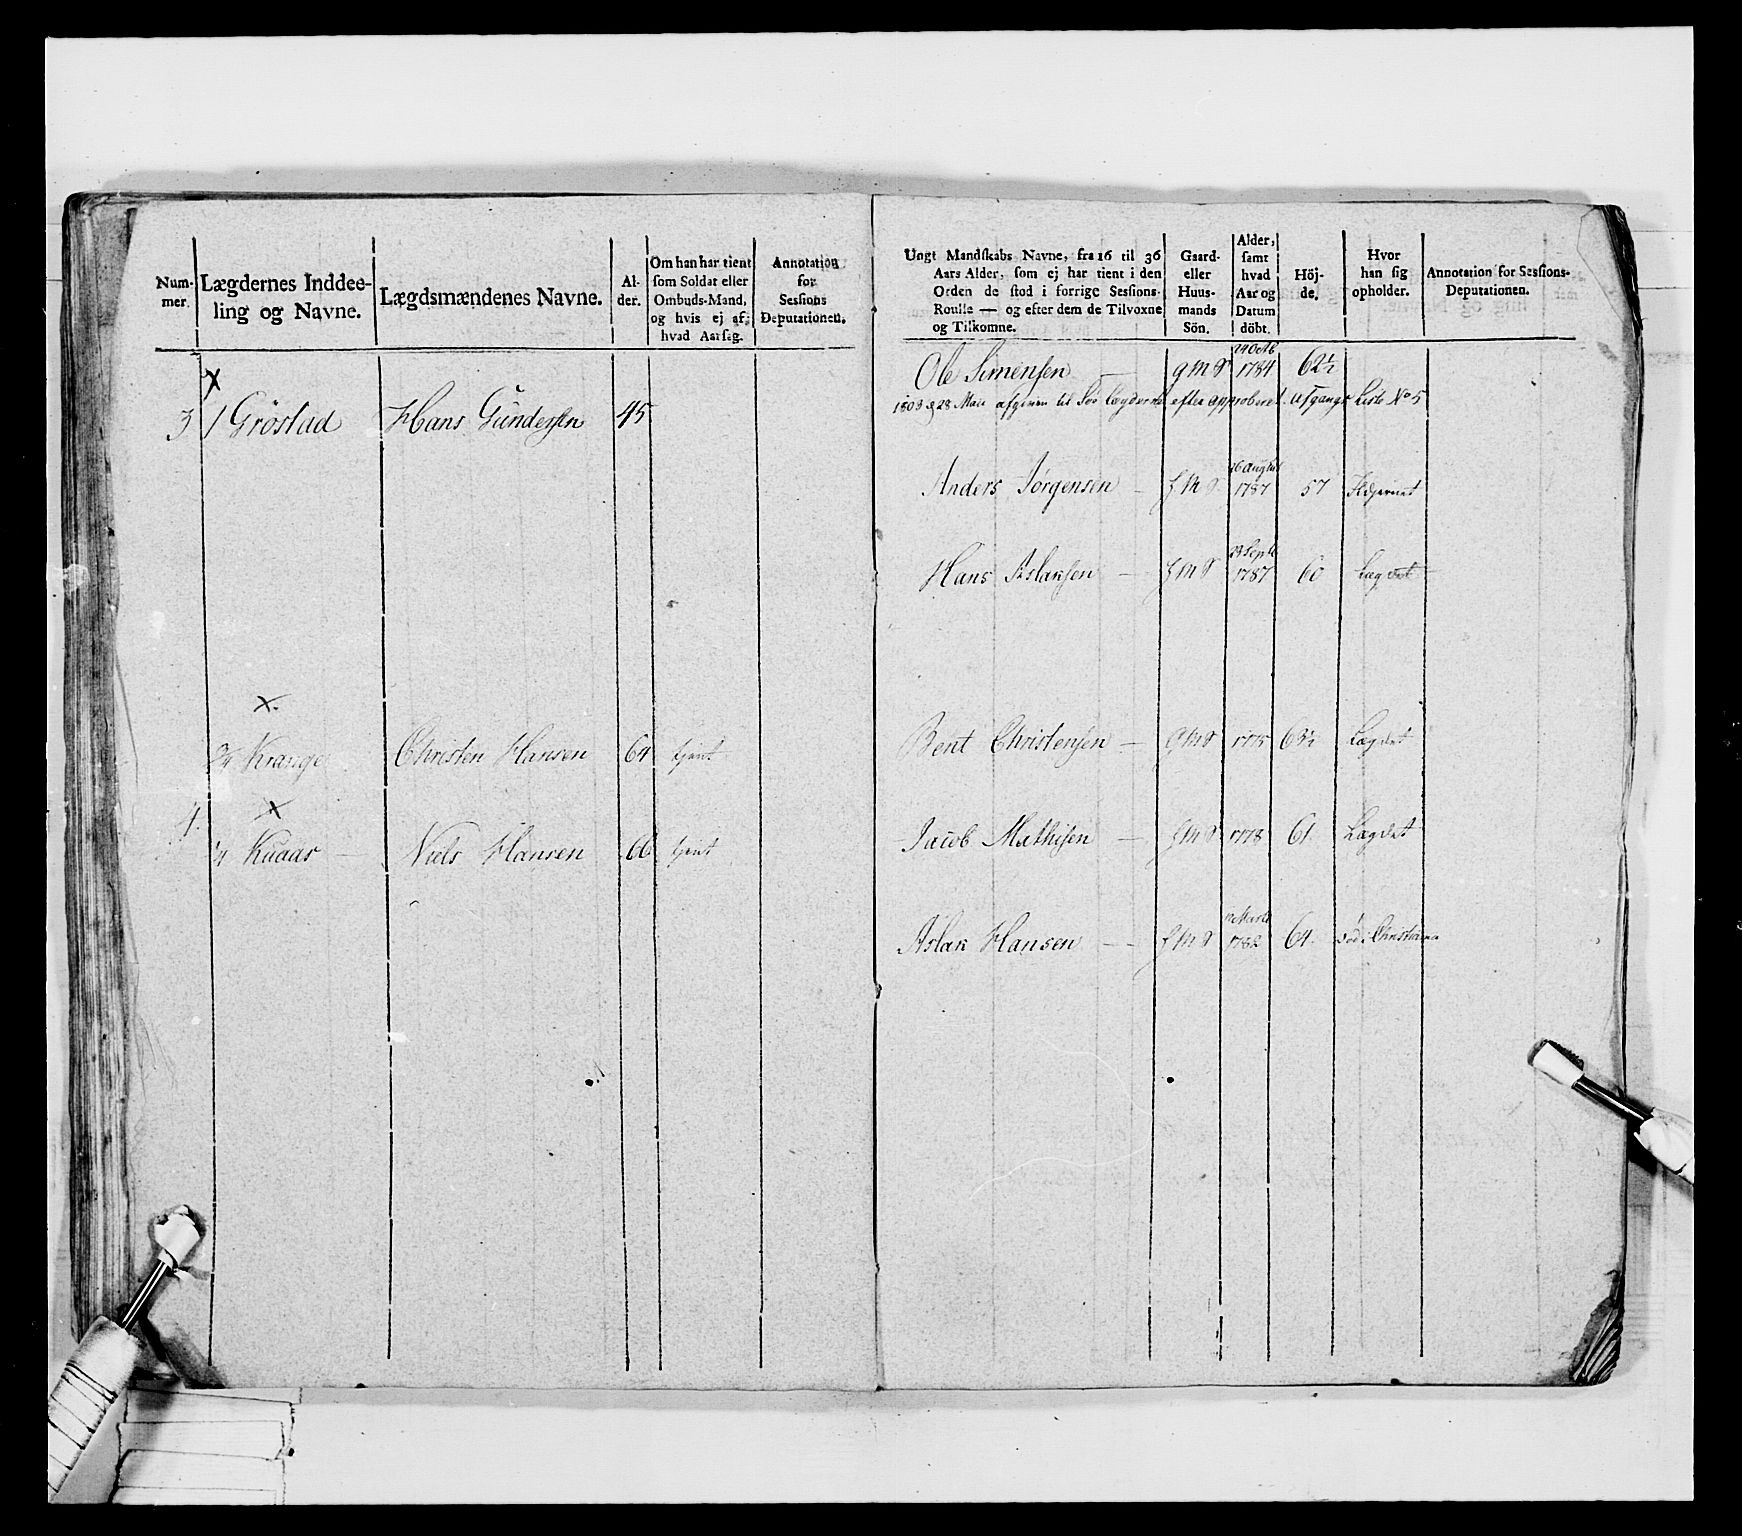 Num-
mer.
Lægdernes Inddee-
ling og Navne.
Lægdsmændenes Navne.
Al-
der.
Om han har tient
som Soldat eller
Ombuds-Mand,
og hvis ej af,
hvad Aarsag.
Annotation
for
Sessions
Deputationen.
3 1 Gröstad Hans Gundersen 45
x.
3/4 Krange Christen Hansen 64 tjent
4. x
1/4 Kuaas Niels Hansen 66 tjent
Ungt Mandskabs Navne, fra 16 til 36
Aars Alder, som ej har tient i den
Orden de stod i forrige Sessions-
Roulle — og efter dem de Tilvoxne
og Tilkomne.
Gaard-
eller
Huus-
mands
Sön.
Alder,
samt
hvad
Aar og
Datum
döbt.
Höj-
de.
Hvor
han sig
opholder.
Annotation for Sessions-
Deputationen.
24 Octb
Ole Simensen g M S 1784 62½
1803 d 28 Maii afgiven til Söe Lægderne efter approberet Afgangs Liste No 5
26 August
Anders Jörgensen — h M S 1787 57
23 Septb
Hans Aslaksen — h M S 1787 60 Lægdet
Bent Christensen — G M S 1775 63½ Lægdet
Jacob Mathisen — h M S 1778 61 Lægdet
Marti
Aslak Hansen — h M S 1782 64 död i Christiania